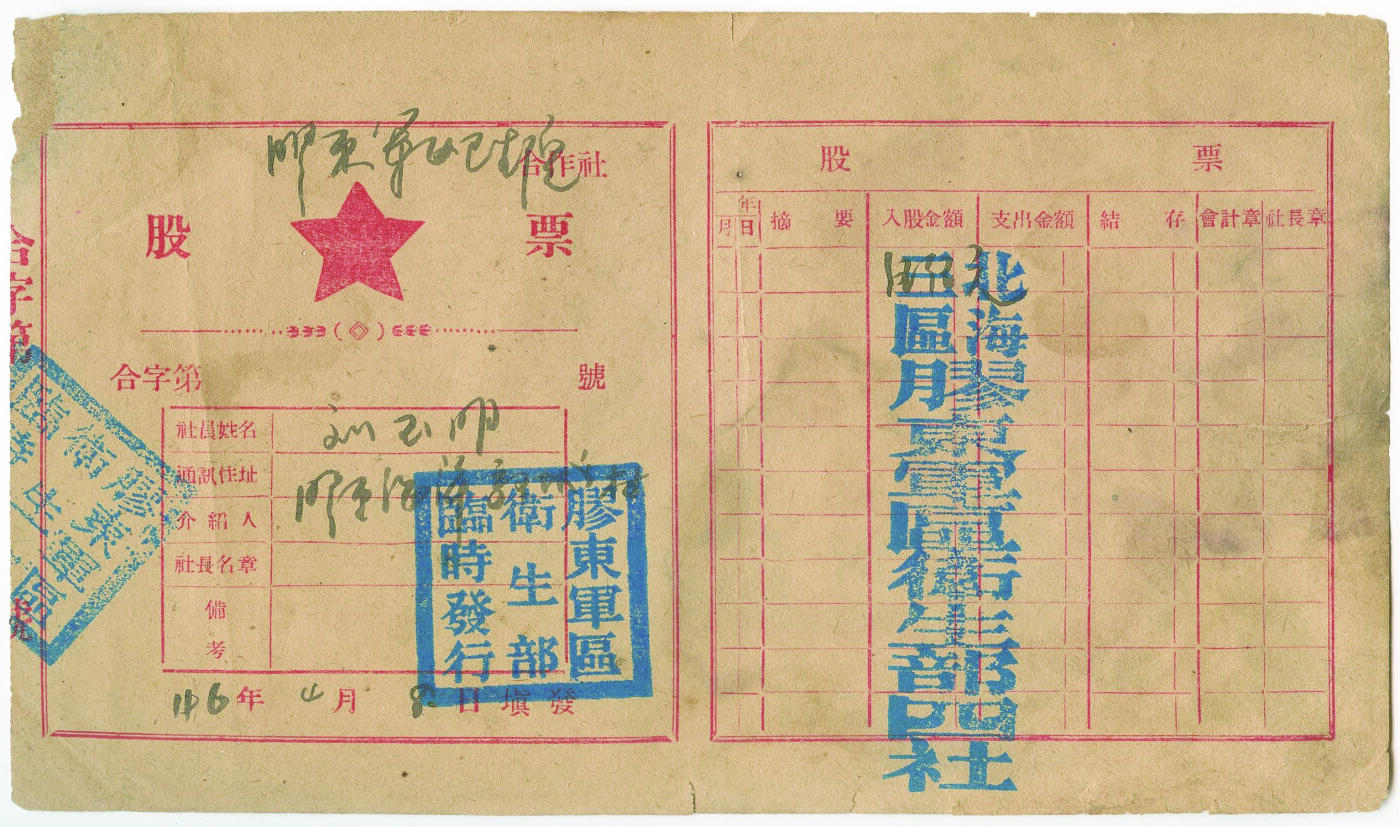 合作社
股 票
合字第 號
合字第
社員姓名 刘玉明
通訊住址
介紹人
社長名章
備考
46年4月8日填發
膠東軍區
衛生部
臨時發行
膠東軍區
衛生
臨
股 票
年
月日 摘要 入股金額 支出金額 結存 會計章 社長章
北海
三區
膠東軍區衛生部四社